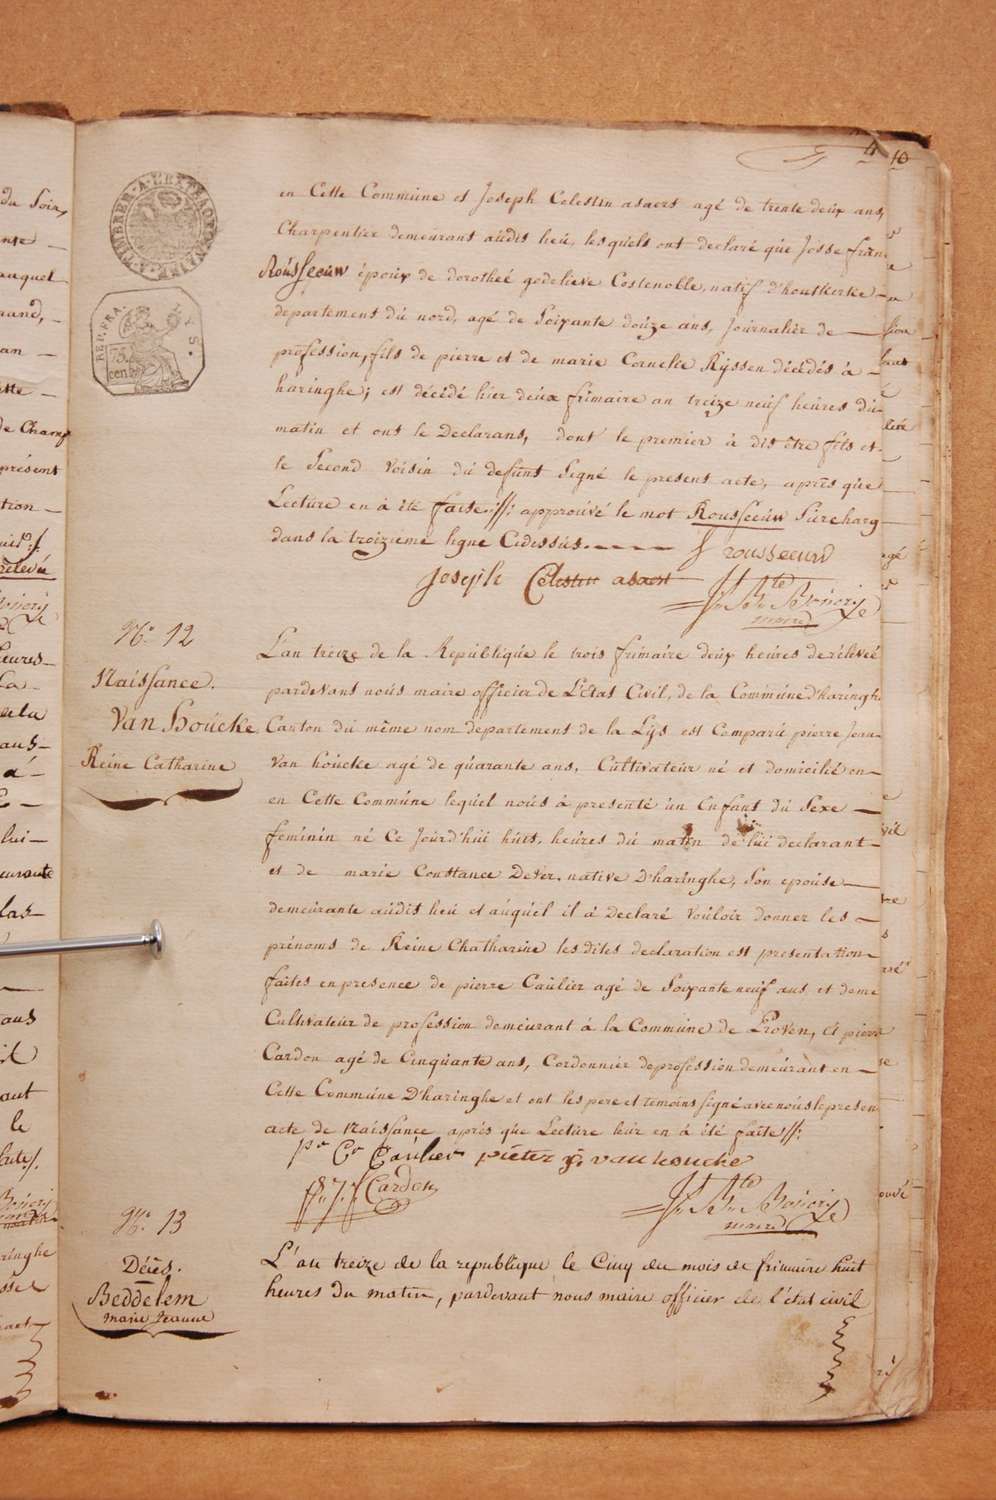 4 10
TIMBRER A L'EXTRAORDINAIRE
REP. FRA.
75.
cent
en Cette Commune et Joseph Celestin asaert agé de trente deux ans,
Charpentier demeurant audit lieu, lesquels ont declaré que Josse fran
Rousseeuw époux de dorotheé godelieve Costenoble, natif d'houtkerke
departement du nord, agé de Soixante douze ans, Journalier de
profession, fils de pierre et de marie Cornelie Ryssen décédés à
haringhe; est décédé hier deux frimaire an treize neuf heures du
matin et ont le Declarans, dont le premier à dit être fils et
le Second voisin du defunt Signé le present acte, après que
Lecture en à été faite ./. approuvé le mot Rousseeuw Surcharg
dans la troizieme ligne Cidessus.
J rousseeuw
Joseph Celestin asaert
maire
N.° 12
Naissance.
Van Houcke
Reine Catharine
L'an treize de la Republique le trois frimaire deux heures de réléveé
pardevant nous maire officier de L'état Civil, de la Commune d'haringh
Canton du même nom departement de la Lys est Comparu pierre Jean
Van houcke agé de quarante ans, Cultivateur né et domicilié en
en Cette Commune lequel nous à presenté un Enfant du Sexe
feminin né Ce Jourd'hui huit, heures du matin de lui declarant
et de marie Constance Dever, native D'haringhe, Son epouse
demeurante audit lieu et auquel il à Declaré vouloir donner les
prénoms de Reine Chatharine les dites declaration est presentation
faites en presence de pierre Caulier agé de Soixante neuf ans et deme
Cultivateur de profession demeurant à la Commune de Proven, et pierre
Cardon agé de Cinquante ans, Cordonnier de profession demeurant en
Cette Commune D'haringhe et ont les pere et temoins signé avec nous le presen
acte de Naissance après que Lecture leur en à été faite ./.
Caulier pieter J: van houcke
Cardon
maire
N.° 13
Décès.
Beddelem
marie Jeanne
L'an treize de la republique le Cinq du mois de frimaire huit
heures Du matin, pardevant nous maire officier de l'état civil